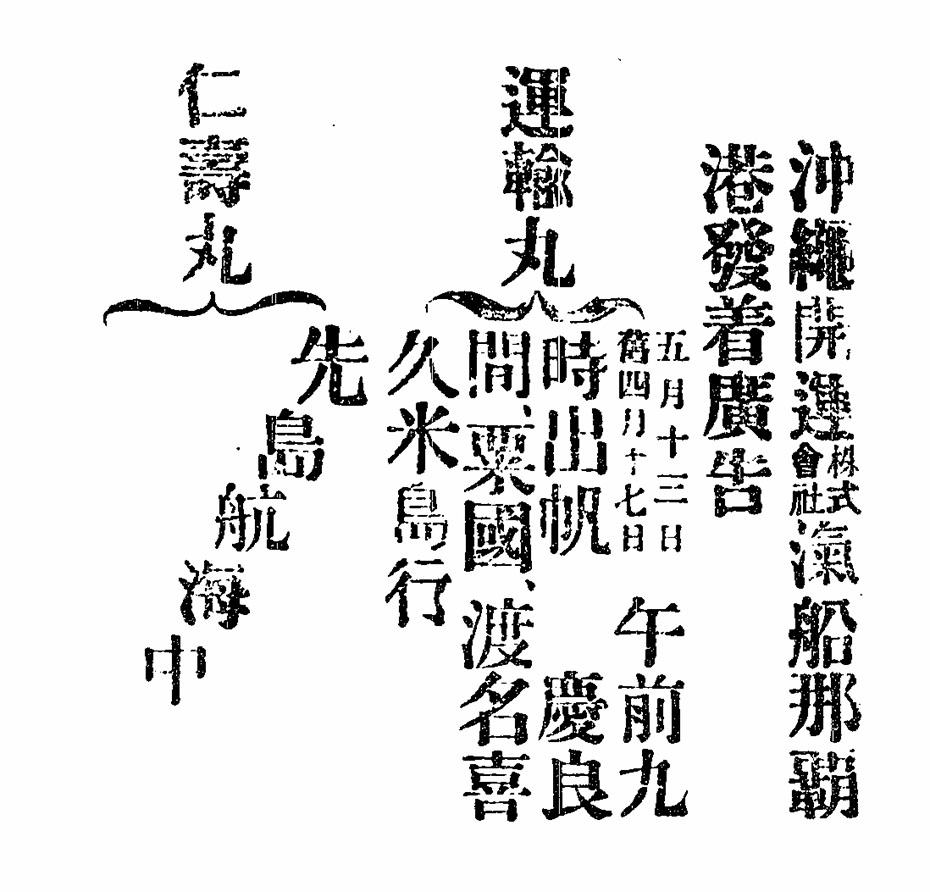 沖繩開運株式會社滊船那覇
港發着廣告
運輸丸
五月十三日
舊四月十七日
午前九
時出帆 慶良
間、粟國、渡名喜
久米島行
仁壽丸
先島航海中